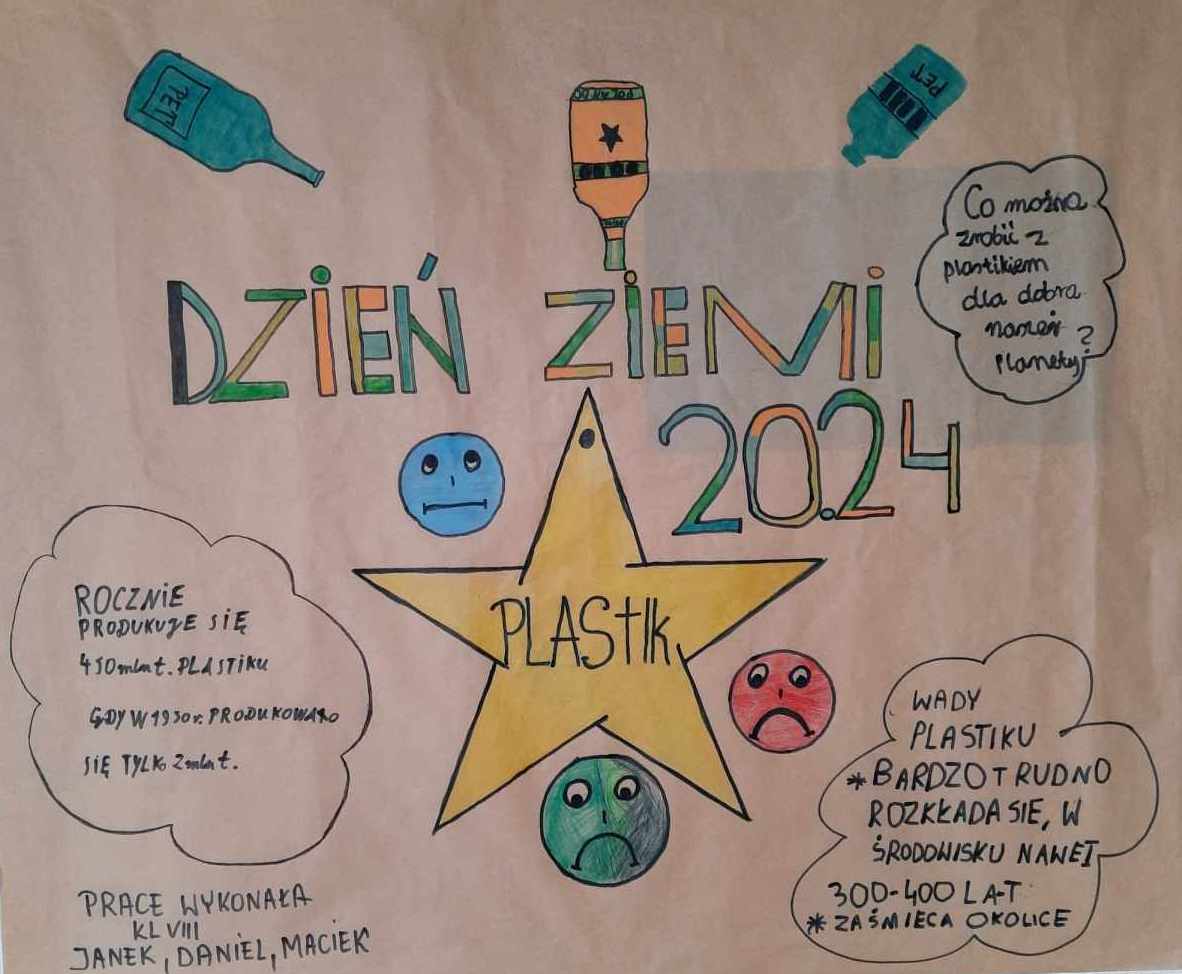 PET
PET
DZIEŃ ZIEMI
20.24
Co można
zrobić z
plastikiem
dla dobra
naszej
planety?
PLAStIk
ROCZNIE
PRODUKUJE SIĘ
450 mln t. PLASTIKU
GDY W 1950 r. PRODUKOWAŁO
SIĘ TYLKO 2 mln t.
WADY
PLASTIKU
* BARDZO TRUDNO
ROZKŁADA SIE, W
ŚRODOWISKU NAWET
300-400 LAT
* ZAŚMIECA OKOLICE
PRACE WYKONAŁA
KL VIII
JANEK, DANIEL, MACIEK